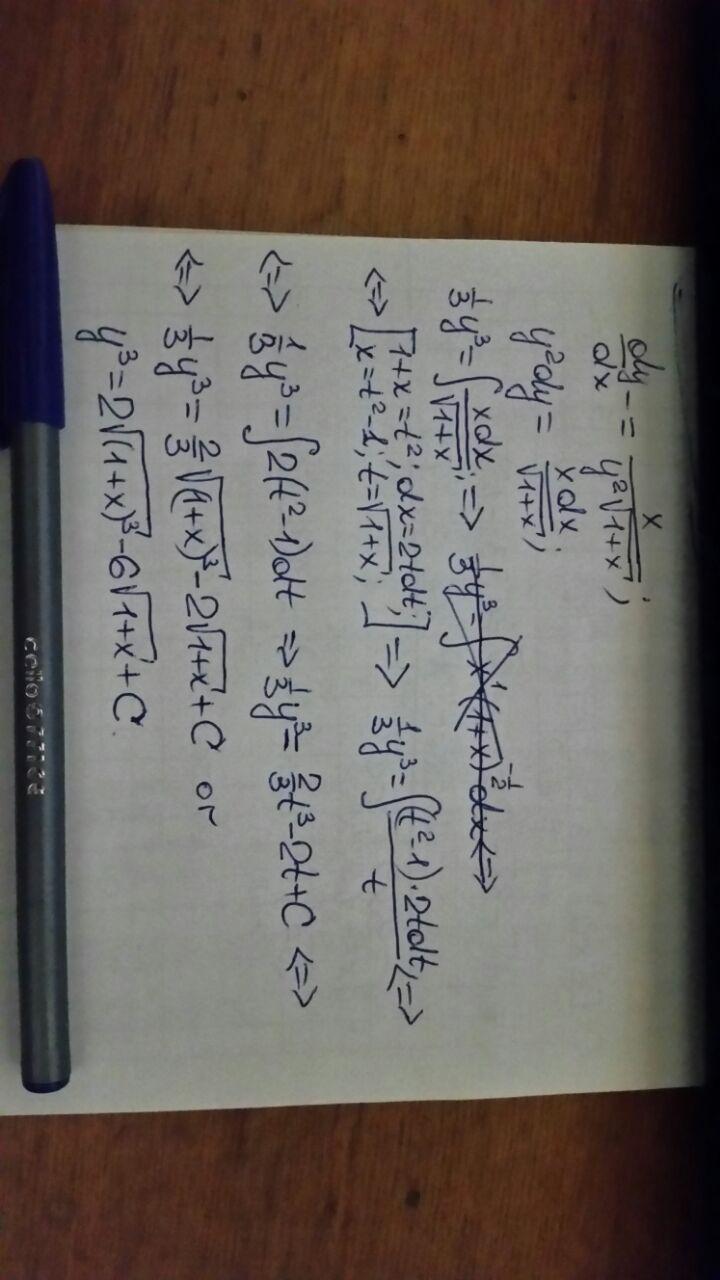 dy/dx = x/(y²√(1+x));
y²dy = xdx/√(1+x);
1/3 y³ = ∫ xdx/√(1+x); => 1/3 y³ = ∫ x¹(1+x)^(-1/2) dx <=>
<=> [1+x = t²; dx = 2tdt; x = t²-1; t = √(1+x);] => 1/3 y³ = ∫ (t²-1)·2tdt/t; <=>
<=> 1/3 y³ = ∫ 2(t²-1)dt => 1/3 y³ = 2/3 t³ - 2t + C <=>
<=> 1/3 y³ = 2/3 √(1+x)³ - 2√(1+x) + C or
y³ = 2√(1+x)³ - 6√(1+x) + C.
cello